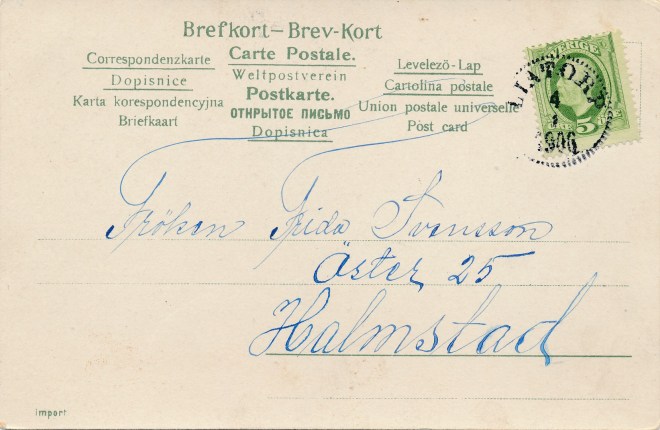 Brefkort–Brev-Kort
Correspondenzkarte
Dopisnice
Karta korespondencyjna
Briefkaart
Carte Postale.
Weltpostverein
Postkarte.
ОТКРЫТОЕ ПИСЬМО
Dopisnica
Levelező-Lap
Cartolina postale
Union postale universelle
Post card
SVERIGE
5
4
1
1906
Fröken Frida Svensson
Öster 25
Halmstad
Import